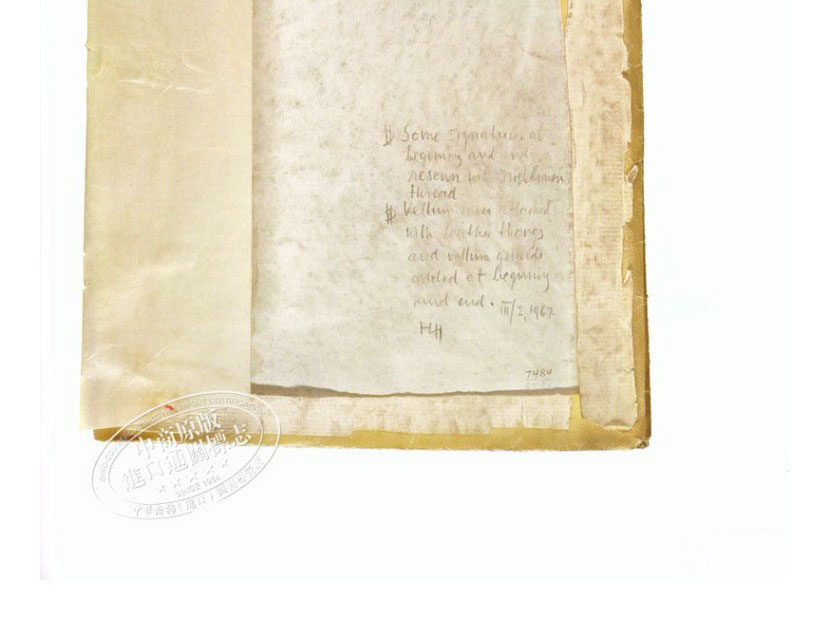 Some signatures at
begining and end
resewn with Irish linen
thread
Vellum cover attached
with leather thongs
and vellum guards
added at begining
and end. III/2, 1967.
HH
7484
中商原版
進口通關標志
SINCE 1984